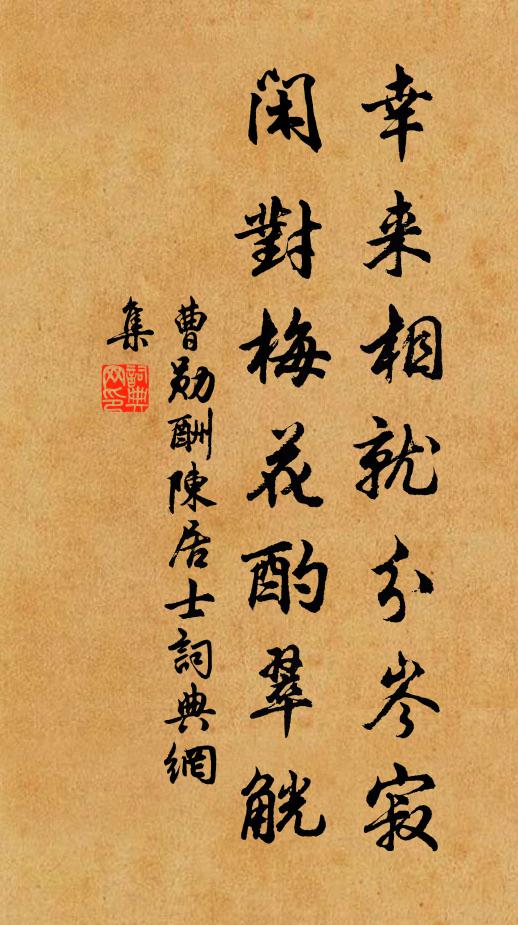 幸来相就分岑寂
闲對梅花酌翠觥
曹勛酬陳居士詞典網
集
詞典网印